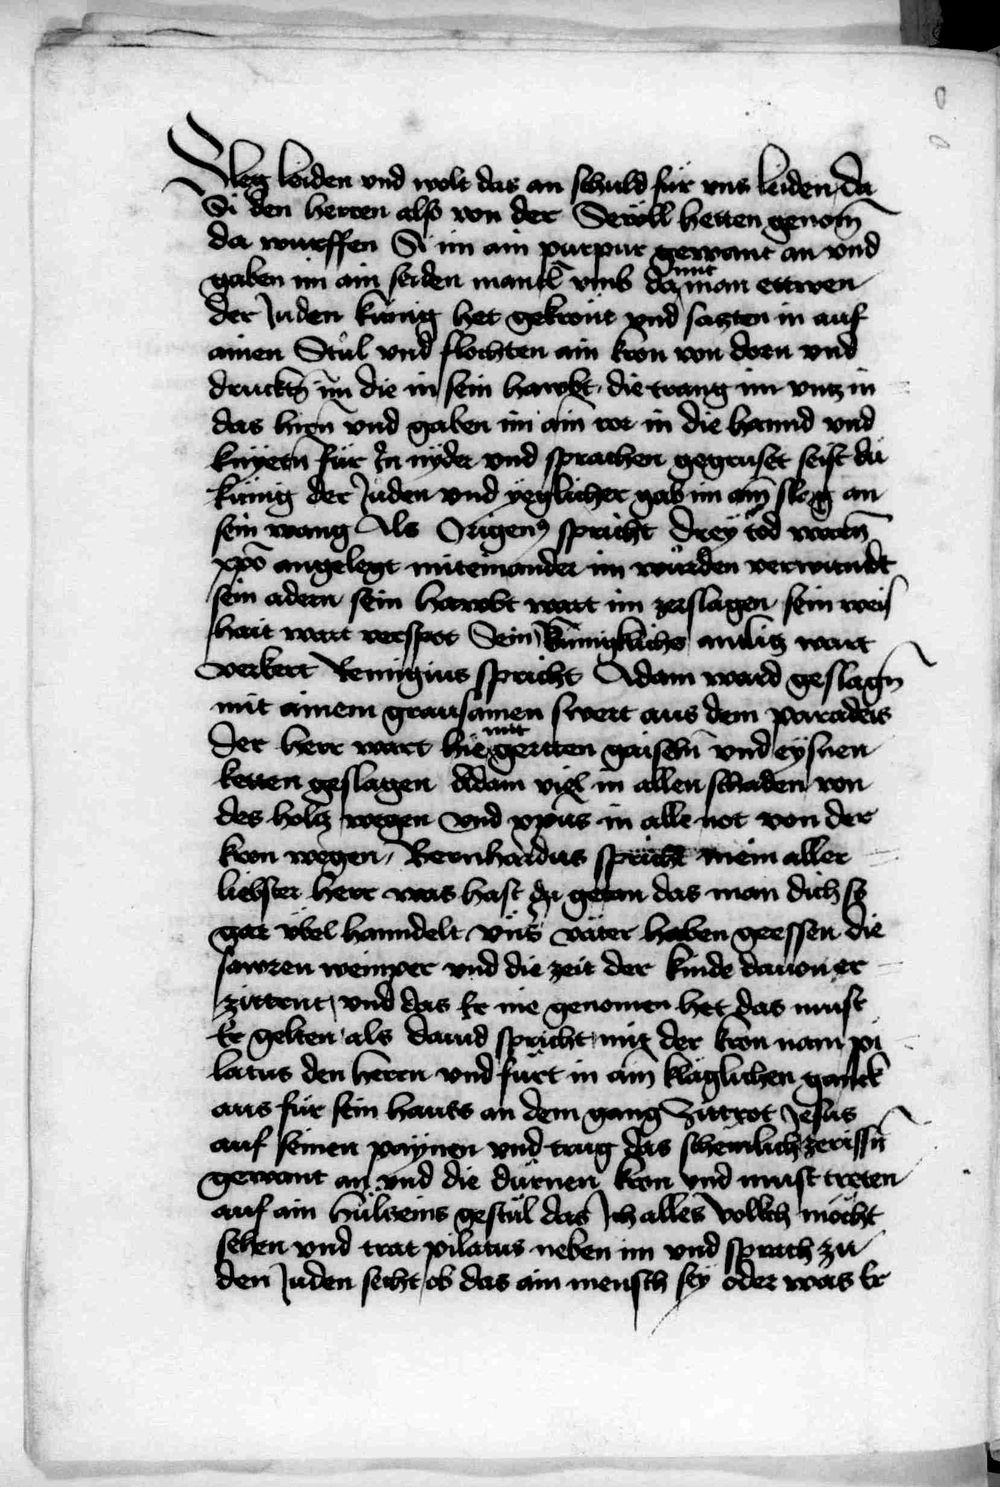 Sleg leiden vnd wolt das an schuld für vns leiden da
Si den herren also von der Sewll hetten genom̄
da wurffen Si im ain purpur gewant an vnd
gaben im ain seiden mantl vmb da mit man ettwen
der Juden künig het gekrönt vnd sazten in auf
ainen Stůl vnd flochten ain kron von dorn vnd
druckt̄n im die in sein hawbt die trang im vntz in
das hirn̄ vnd gaben im ain ror in die hannd vnd
knyetn̄ für In nyder vnd sprachen gegruset seist du
künig der Juden vnd yeglicher gab im ain̄ sleg an
sein wang Als Origenꝰ spricht drey tod warn̄
xpō angelegt miteinander im wurden verwundt
sein adern sein hawbt wart im zerslagen sein weis
hait wart verspot Sein künigkliches antlitz wart
verkert Remigius spricht Adam ward geslagn̄
mit ainem grausamen swert aus dem paradeis
der herr wart hie mit gerten gaiseln̄ vnd eysnen
ketten geslagen Adam viel in allen schaden von
des holtz wegen vnd xpūs in alle not von der
kron wegen Bernhardus spricht mein aller
liebster herr was hast du getan das man dich so
gar vbel hanndelt vns̄ väter haben geessen die
sawren weinper vnd die zeit der kinde dauon er
zittent vnd das Er nie genomen het das must
Er gelten als dauid spricht mit der kron nam pi
latus den herrn vnd fürt in ain̄ kläglichen ganck
aus für sein hauss an dem gang zittrot Jesus
auf seinen paynen vnd trug das scheinlich zerissn̄
gewant an vnd die dürnen kron vnd must treten
auf ain hülzeins gestül das In alles volkch möcht
sehen vnd trat pilatus neben im vnd sprach zu
den Juden secht ob das ain mensch sey oder was Er